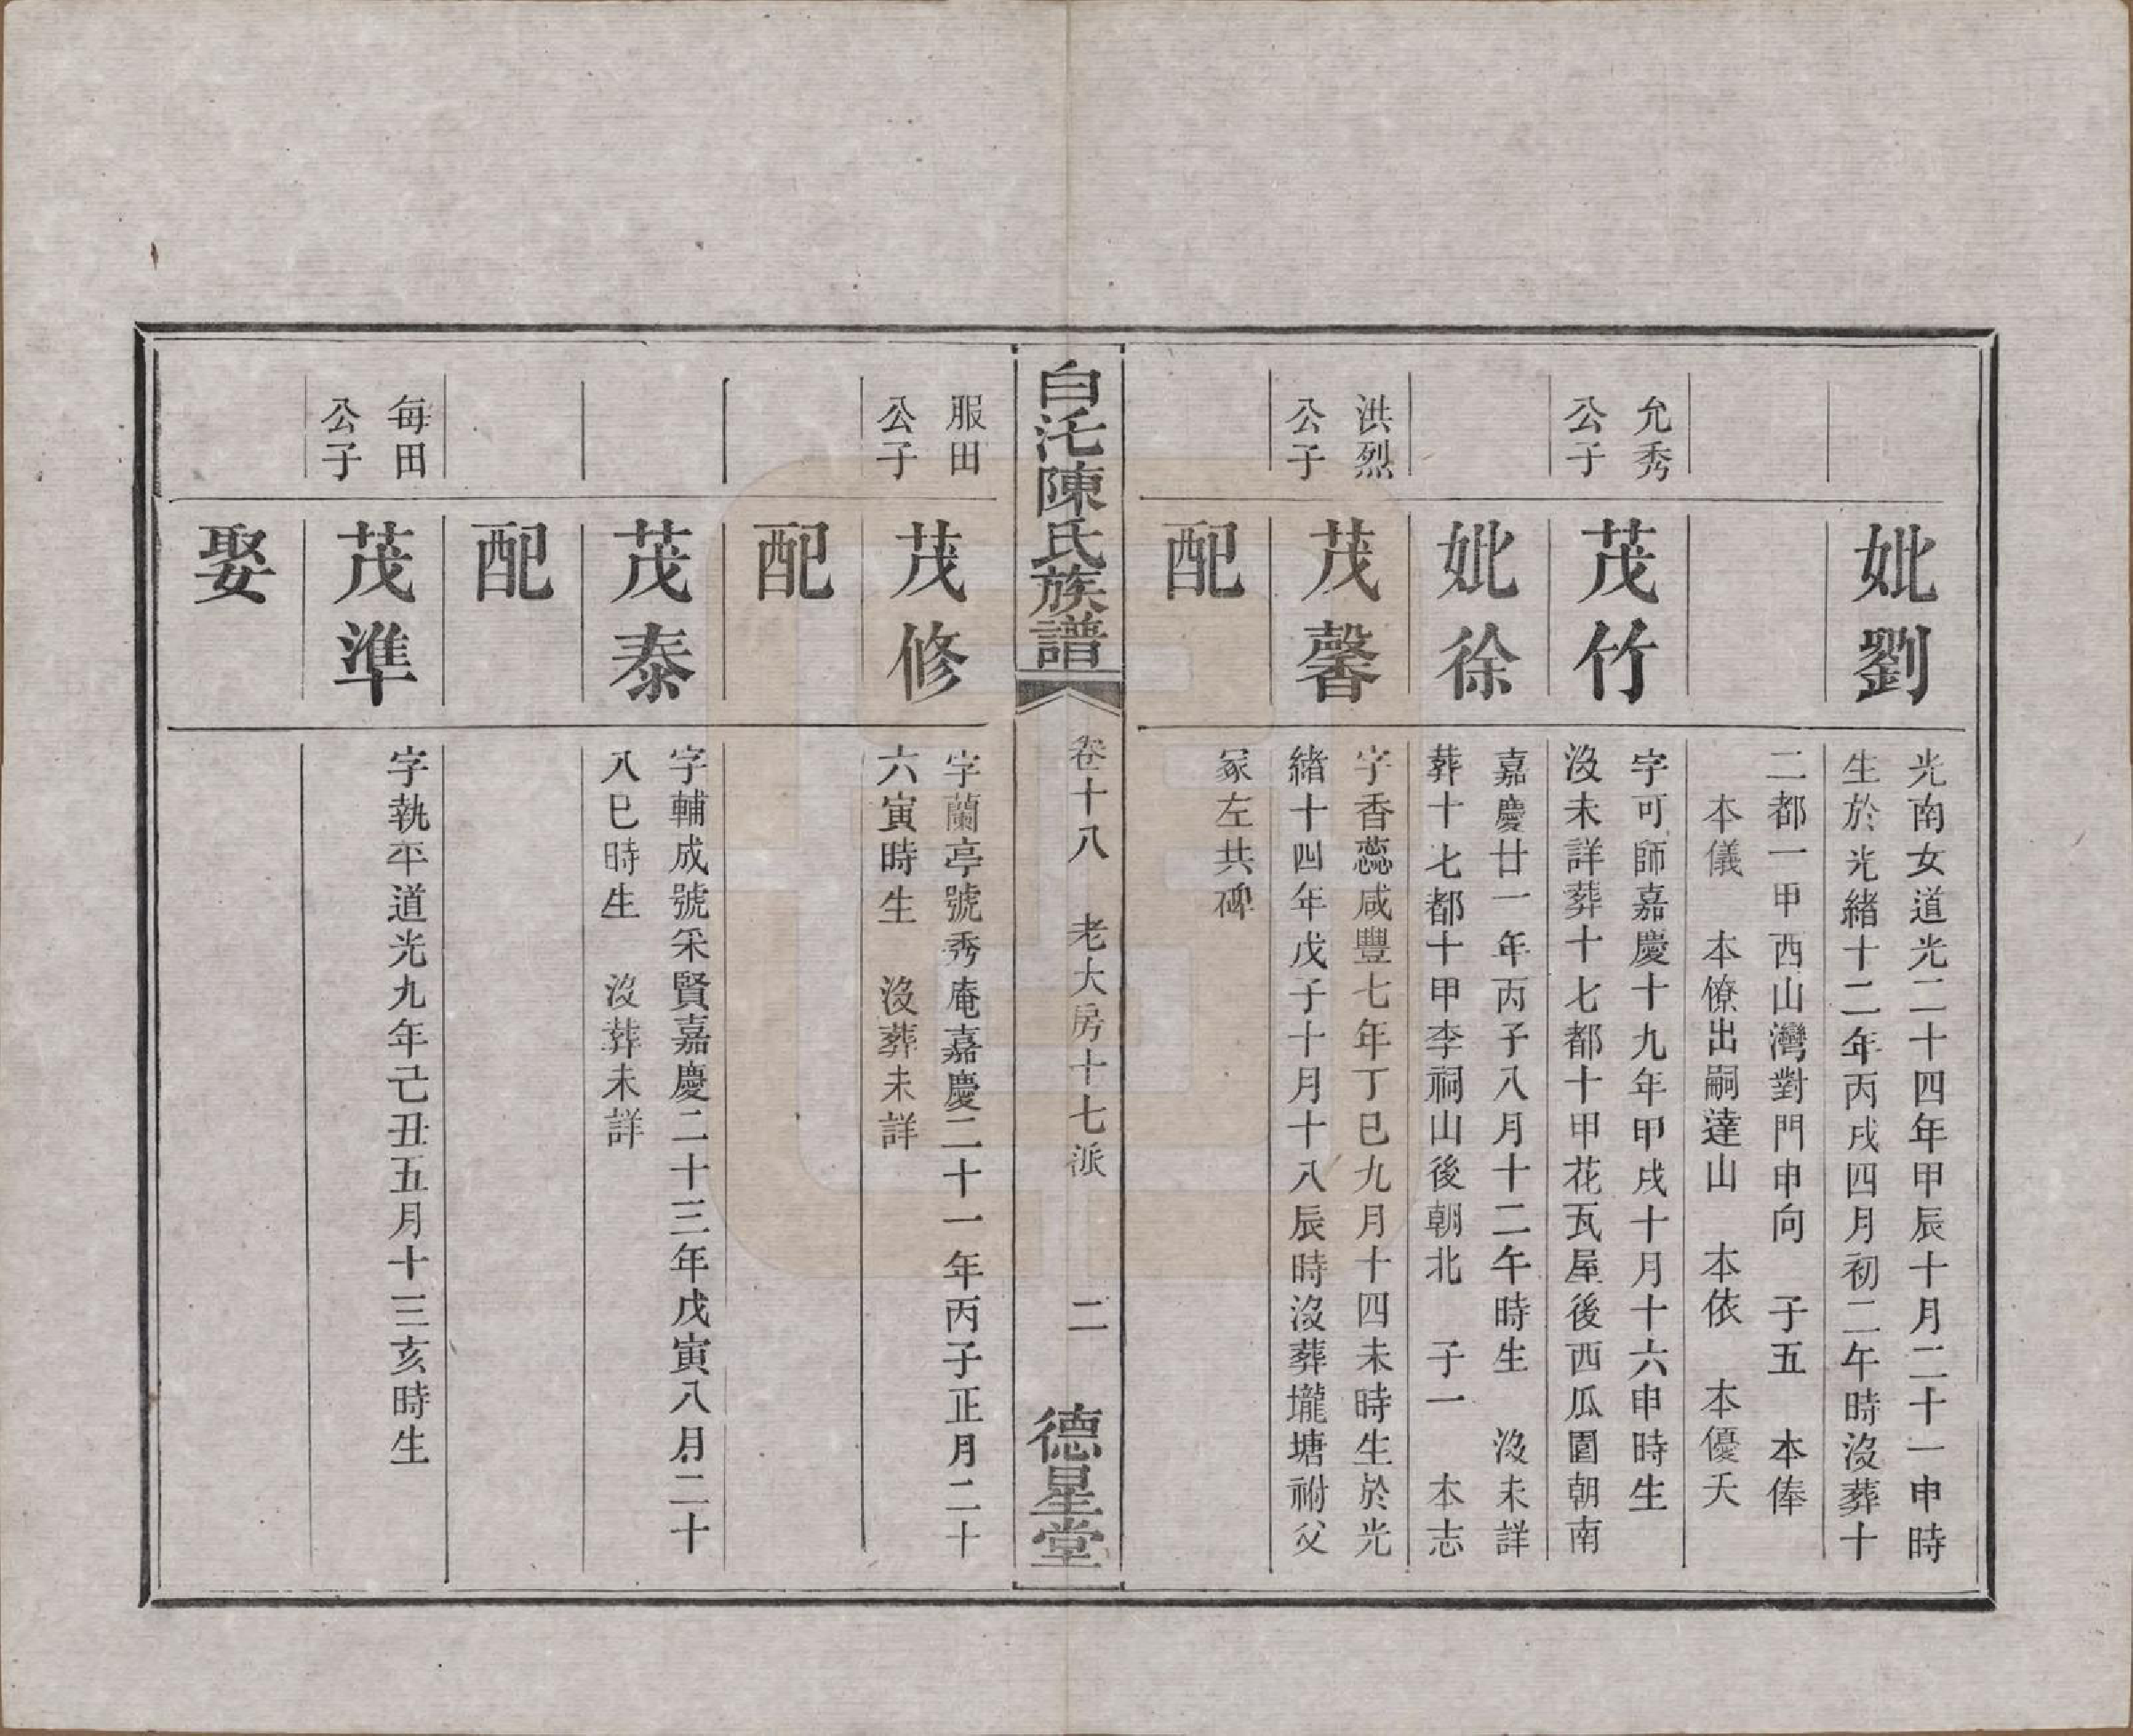 妣劉
光南女道光二十四年甲辰十月二十一申時
生於光緒十二年丙戌四月初二午時沒葬十
二都一甲西山灣對門申向　子五　本俸
本儀　本僚出嗣達山　本依　本優夭
允秀
公子
茂竹
字可師嘉慶十九年甲戌十月十六申時生
沒未詳葬十七都十甲花瓦屋後西瓜園朝南
妣徐
嘉慶廿一年丙子八月十二午時生　沒未詳
葬十七都十甲李祠山後朝北　子一　本志
洪烈
公子
茂馨
字香蕊咸豐七年丁巳九月十四未時生於光
緒十四年戊子十月十八辰時沒葬壠塘祔父
冢左共碑
配
白沱陳氏族譜
卷十八　老大房十七派　二
德星堂
服田
公子
茂修
字蘭亭號秀庵嘉慶二十一年丙子正月二十
六寅時生　沒葬未詳
配
茂泰
字輔成號采賢嘉慶二十三年戊寅八月二十
八巳時生　沒葬未詳
配
每田
公子
茂準
字執平道光九年己丑五月十三亥時生
娶